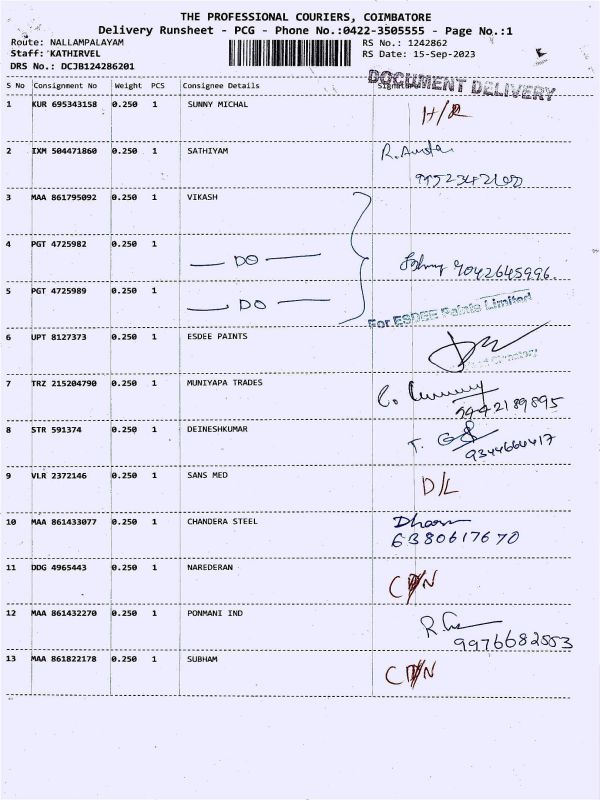 THE PROFESSIONAL COURIERS, COIMBATORE
Delivery Runsheet - PCG - Phone No.:0422-3505555 - Page No.:1
Route: NALLAMPALAYAM RS No.: 1242862
Staff: KATHIRVEL RS Date: 15-Sep-2023
DRS No.: DCJB124286201
DOCUMENT DELIVERY
S No Consignment No Weight PCS Consignee Details Signature
1 KUR 695343158 0.250 1 SUNNY MICHAL
2 IXM 504471860 0.250 1 SATHIYAM R.
3 MAA 861795092 0.250 1 VIKASH
4 PGT 4725982 0.250 1 — DO — 9042645996.
5 PGT 4725989 0.250 1 — DO —
For ESDEE Paints Limited
6 UPT 8127373 0.250 1 ESDEE PAINTS
7 TRZ 215204790 0.250 1 MUNIYAPA TRADES
9442189895
8 STR 591374 0.250 1 DEINESHKUMAR T.
9344664417
9 VLR 2372146 0.250 1 SANS MED D/L
10 MAA 861433077 0.250 1 CHANDERA STEEL
6380617670
11 DDG 4965443 0.250 1 NAREDERAN
12 MAA 861432270 0.250 1 PONMANI IND
9976682553
13 MAA 861822178 0.250 1 SUBHAM